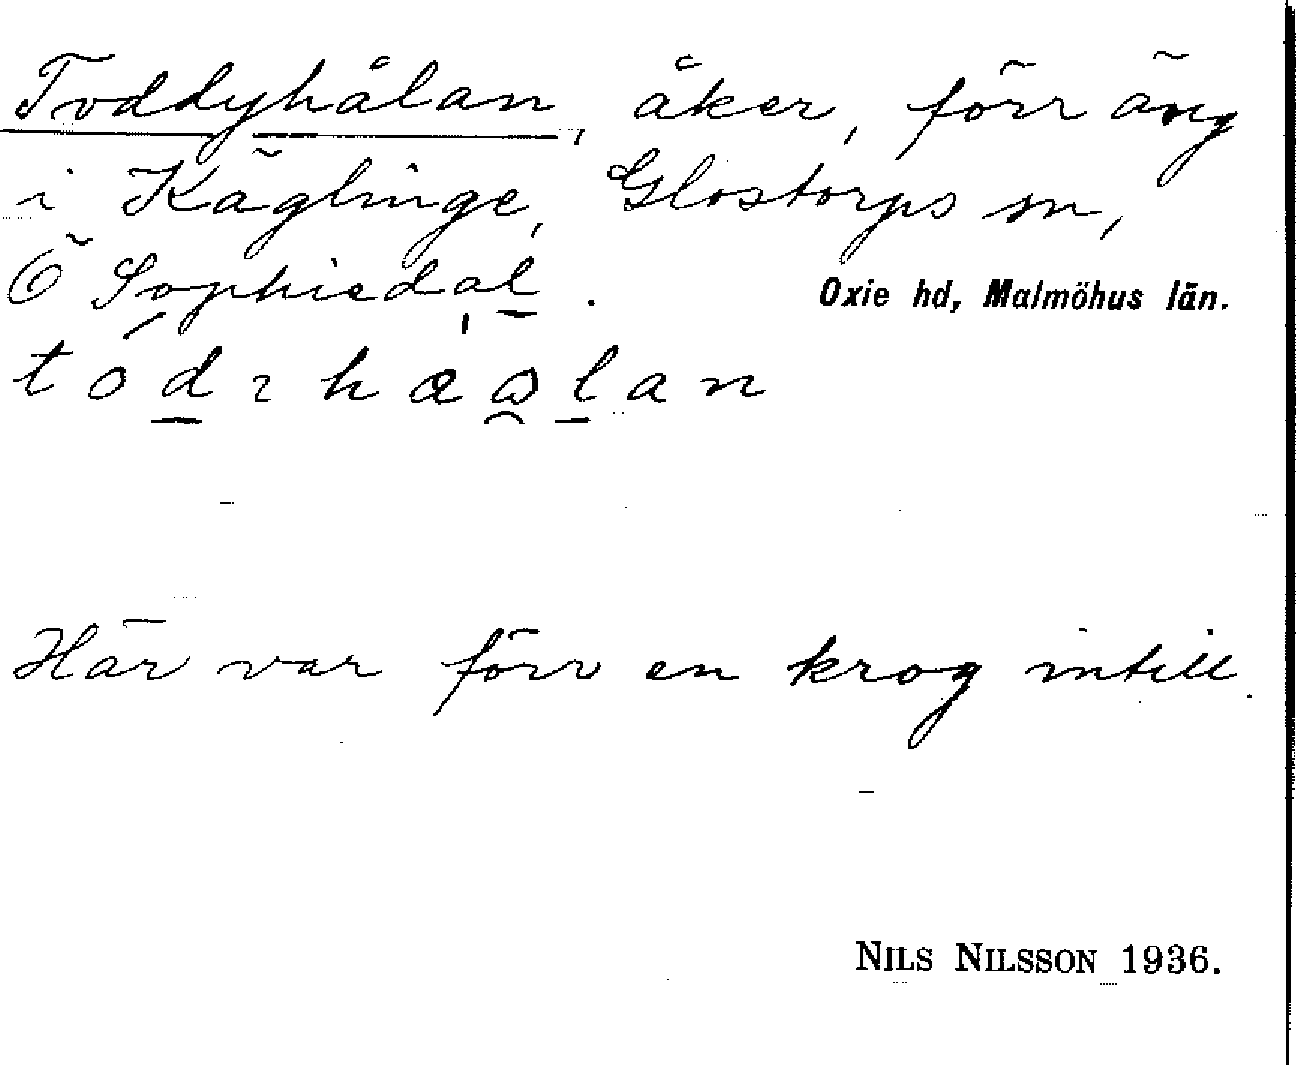 Toddyhålan, åker, förr äng
i Käglinge, Glostorps sn,
Ö Sophiedal.
Oxie hd, Malmöhus län.
Här var förr en krog intill.
NILS NILSSON 1936.